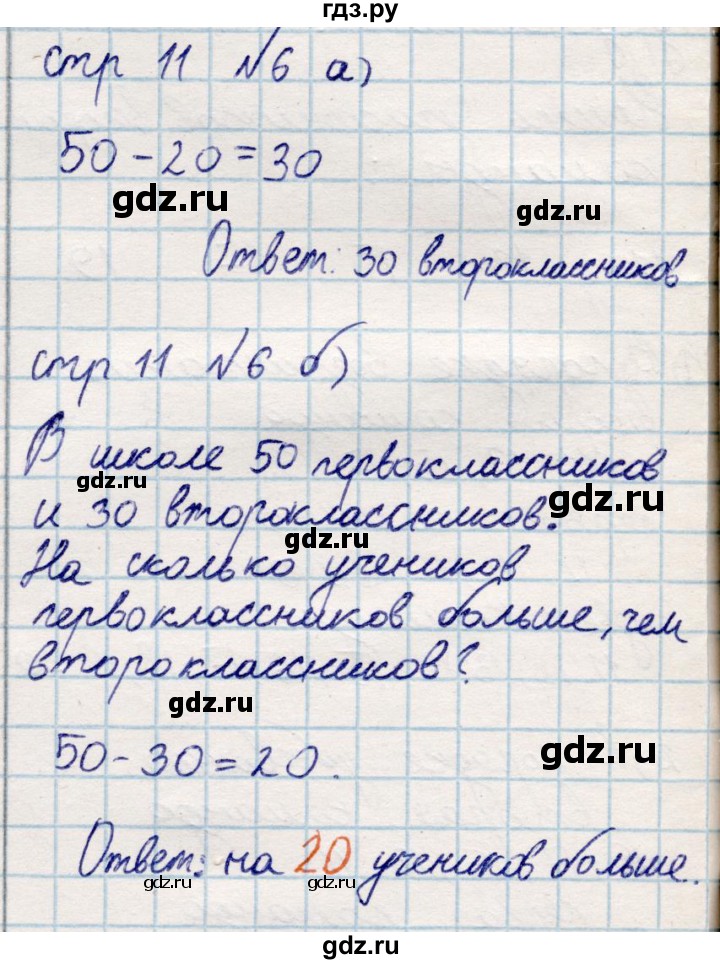 гдз.ру
стр 11 №6 а)
50-20=30
gdz.ru
gdz.ru
Ответ: 30 второклассников
стр 11 №6 б)
В школе 50 первоклассников
gdz.ru
gdz.ru
и 30 второклассников.
gdz.ru
На сколько учеников
первоклассников больше, чем
второклассников?
gdz.ru
50-30=20.
gdz.ru
Ответ: на 20 учеников больше.
gdz.ru
gdz.ru
gdz.ru